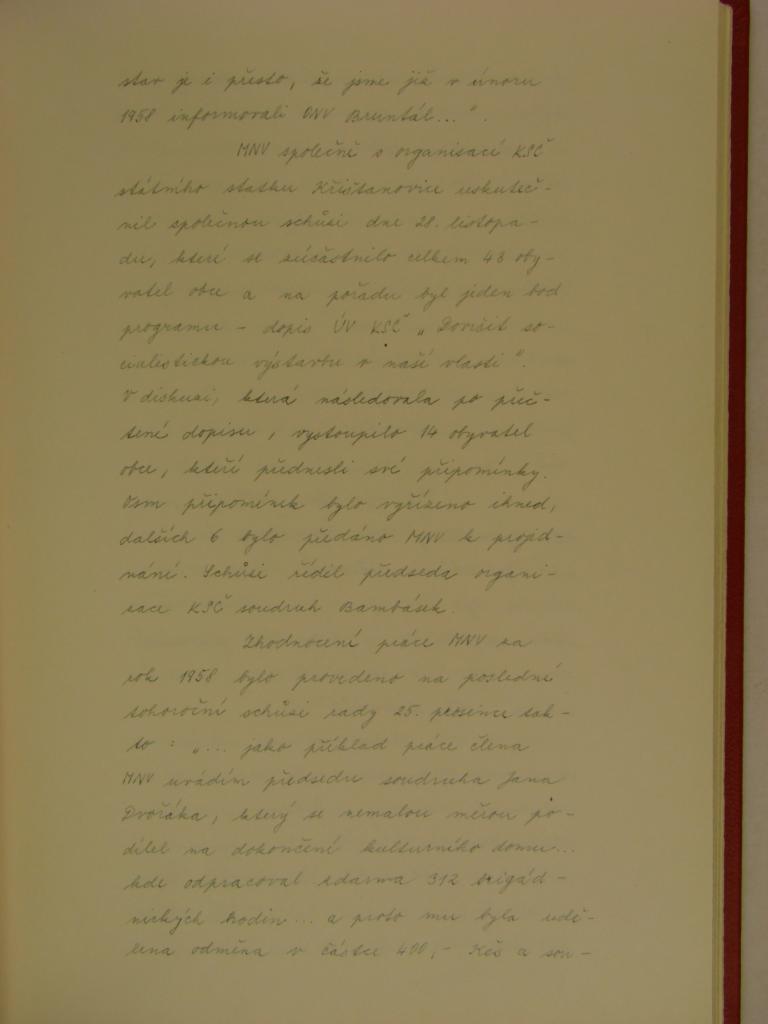 stav je i přesto, že jsme již v únoru
1958 informovali ONV Bruntál...".
MNV společně s organisací KSČ
státního statku Křišťanovice uskuteč-
nil společnou schůzi dne 28. listopa-
du, které se zúčastnilo celkem 43 oby-
vatel obce a na pořadu byl jeden bod
programu - dopis ÚV KSČ „Dovršit so-
cialistickou výstavbu v naší vlasti".
V diskuzi, která následovala po přeč-
tení dopisu, vystoupilo 14 obyvatel
obce, kteří přednesli své připomínky.
Osm připomínek bylo vyřízeno ihned,
dalších 6 bylo předáno MNV k projed-
nání. Schůzi řídil předseda organi-
sace KSČ soudruh Bambásek.
Zhodnocení práce MNV za
rok 1958 bylo provedeno na poslední
tohoroční schůzi rady 25. prosince tak-
to: „... jako příklad práce člena
MNV uvádím předsedu soudruha Jana
Dvořáka, který se nemalou měrou po-
dílel na dokončení kulturního domu...
kde odpracoval zdarma 312 brigád-
nických hodin... a proto mu byla udě-
lena odměna v částce 400,- Kčs a sou-